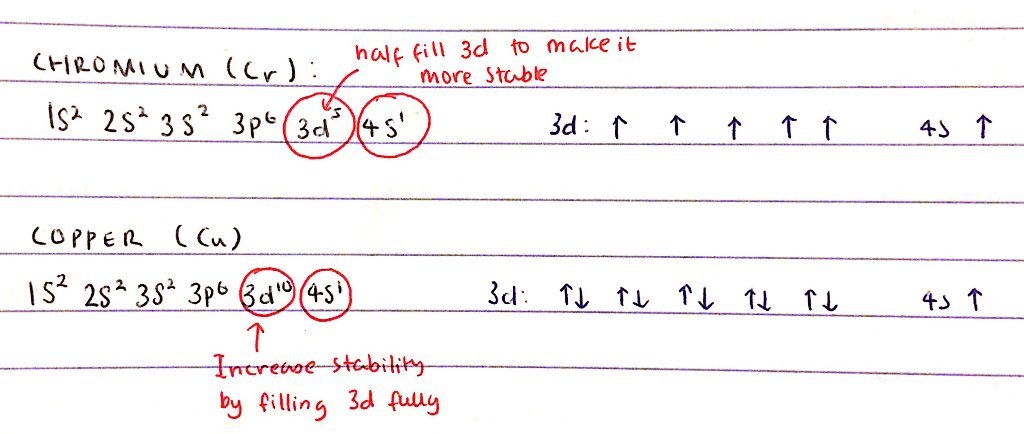 half fill 3d to make it
more stable
CHROMIUM (Cr):
1s² 2s² 3s² 3p⁶ 3d⁵ 4s¹ 3d: ↑ ↑ ↑ ↑ ↑ 4s ↑
COPPER (Cu)
1s² 2s² 3s² 3p⁶ 3d¹⁰ 4s¹ 3d: ↑↓ ↑↓ ↑↓ ↑↓ ↑↓ 4s ↑
Increase stability
by filling 3d fully